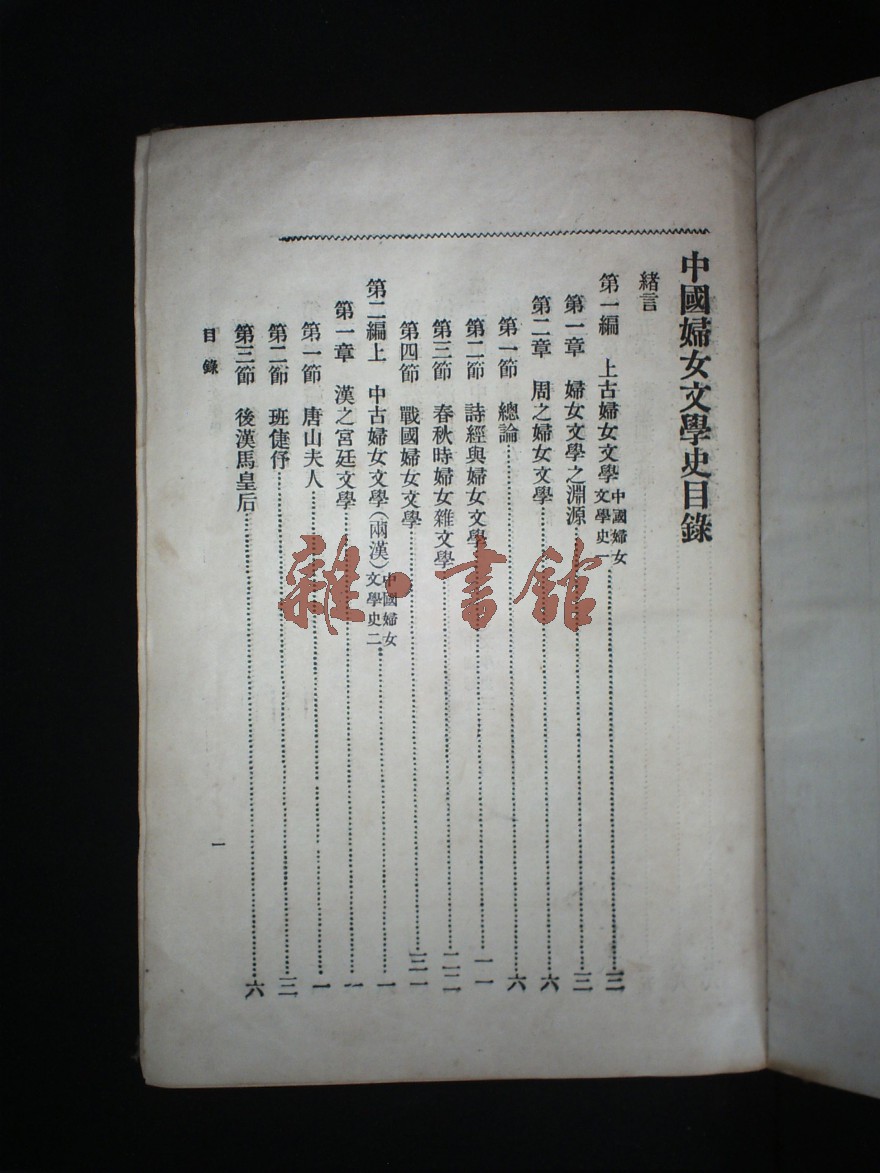 中國婦女文學史目錄
緒言
第一編 上古婦女文學 中國婦女文學史一 三
第一章 婦女文學之淵源 三
第二章 周之婦女文學 六
第一節 總論 六
第二節 詩經與婦女文學 一一
第三節 春秋時婦女雜文學 二二
第四節 戰國婦女文學 三一
第二編上 中古婦女文學(兩漢) 中國婦女文學史二 一
第一章 漢之宮廷文學 一
第一節 唐山夫人 一
第二節 班倢伃 三
第三節 後漢馬皇后 六
目錄
一
雜·書館